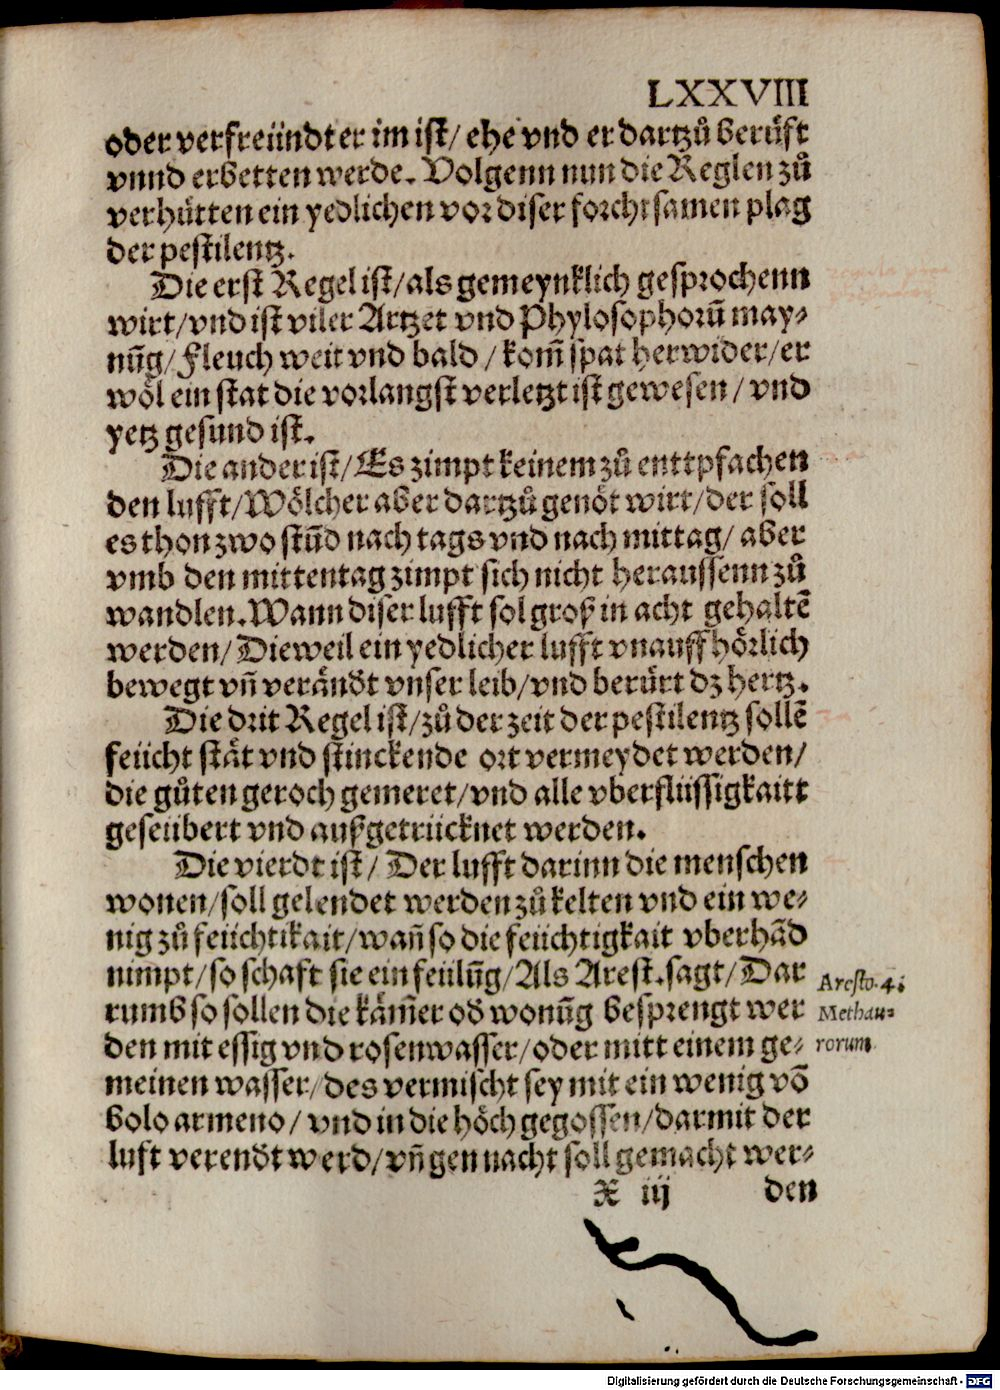 LXXVIII
oder verfreündt er im ist/ ehe vnd er dartzů berüft
vnnd erbetten werde. Volgenn nun die Reglen zů
verhütten ein yedlichen vor diser forchtsamen plag
der pestilentz.
Die erst Regel ist/als gemeynklich gesprochenn
wirt/vnd ist viler Artzet vnd Phylosophorū may-
nūg/Fleuch weit vnd bald/kom̄ spat herwider/er
wöl ein stat die vorlangst verletzt ist gewesen/vnd
yetz gesund ist.
Die ander ist/Es zimpt keinem zů enttpfachen
den lufft/Wölcher aber dartzů genöt wirt/der soll
es thon zwo stūd nach tags vnd nach mittag/ aber
vmb den mittentag zimpt sich nicht heraussenn zů
wandlen.Wann diser lufft sol groß in acht gehaltē
werden/Dieweil ein yedlicher lufft vnauffhörlich
bewegt vn̄ verändt vnser leib/vnd berürt dz hertz.
Die drit Regel ist/zů der zeit der pestilentz sollē
feücht stät vnd stinckende ort vermeydet werden/
die gůten geroch gemeret/vnd alle vberflüssigkaitt
geseübert vnd außgetrücknet werden.
Die vierdt ist/ Der lufft darinn die menschen
wonen/soll gelendet werden zů kelten vnd ein we-
nig zů feüchtikait/wan̄ so die feüchtigkait vberhād
nimpt/so schaft sie ein feülūg/Als Arest.sagt/Dar
rumb so sollen die käm̄er od wonūg besprengt wer
den mit essig vnd rosenwasser/oder mitt einem ge-
meinen wasser/des vermischt sey mit ein wenig vō
bolo armeno/ vnd in die höch gegossen/darmit der
luft verendt werd/vn̄ gen nacht soll gemacht wer-
X iij den
Aresto.4.
Methau-
rorum.
Digitalisierung gefördert durch die Deutsche Forschungsgemeinschaft - DFG